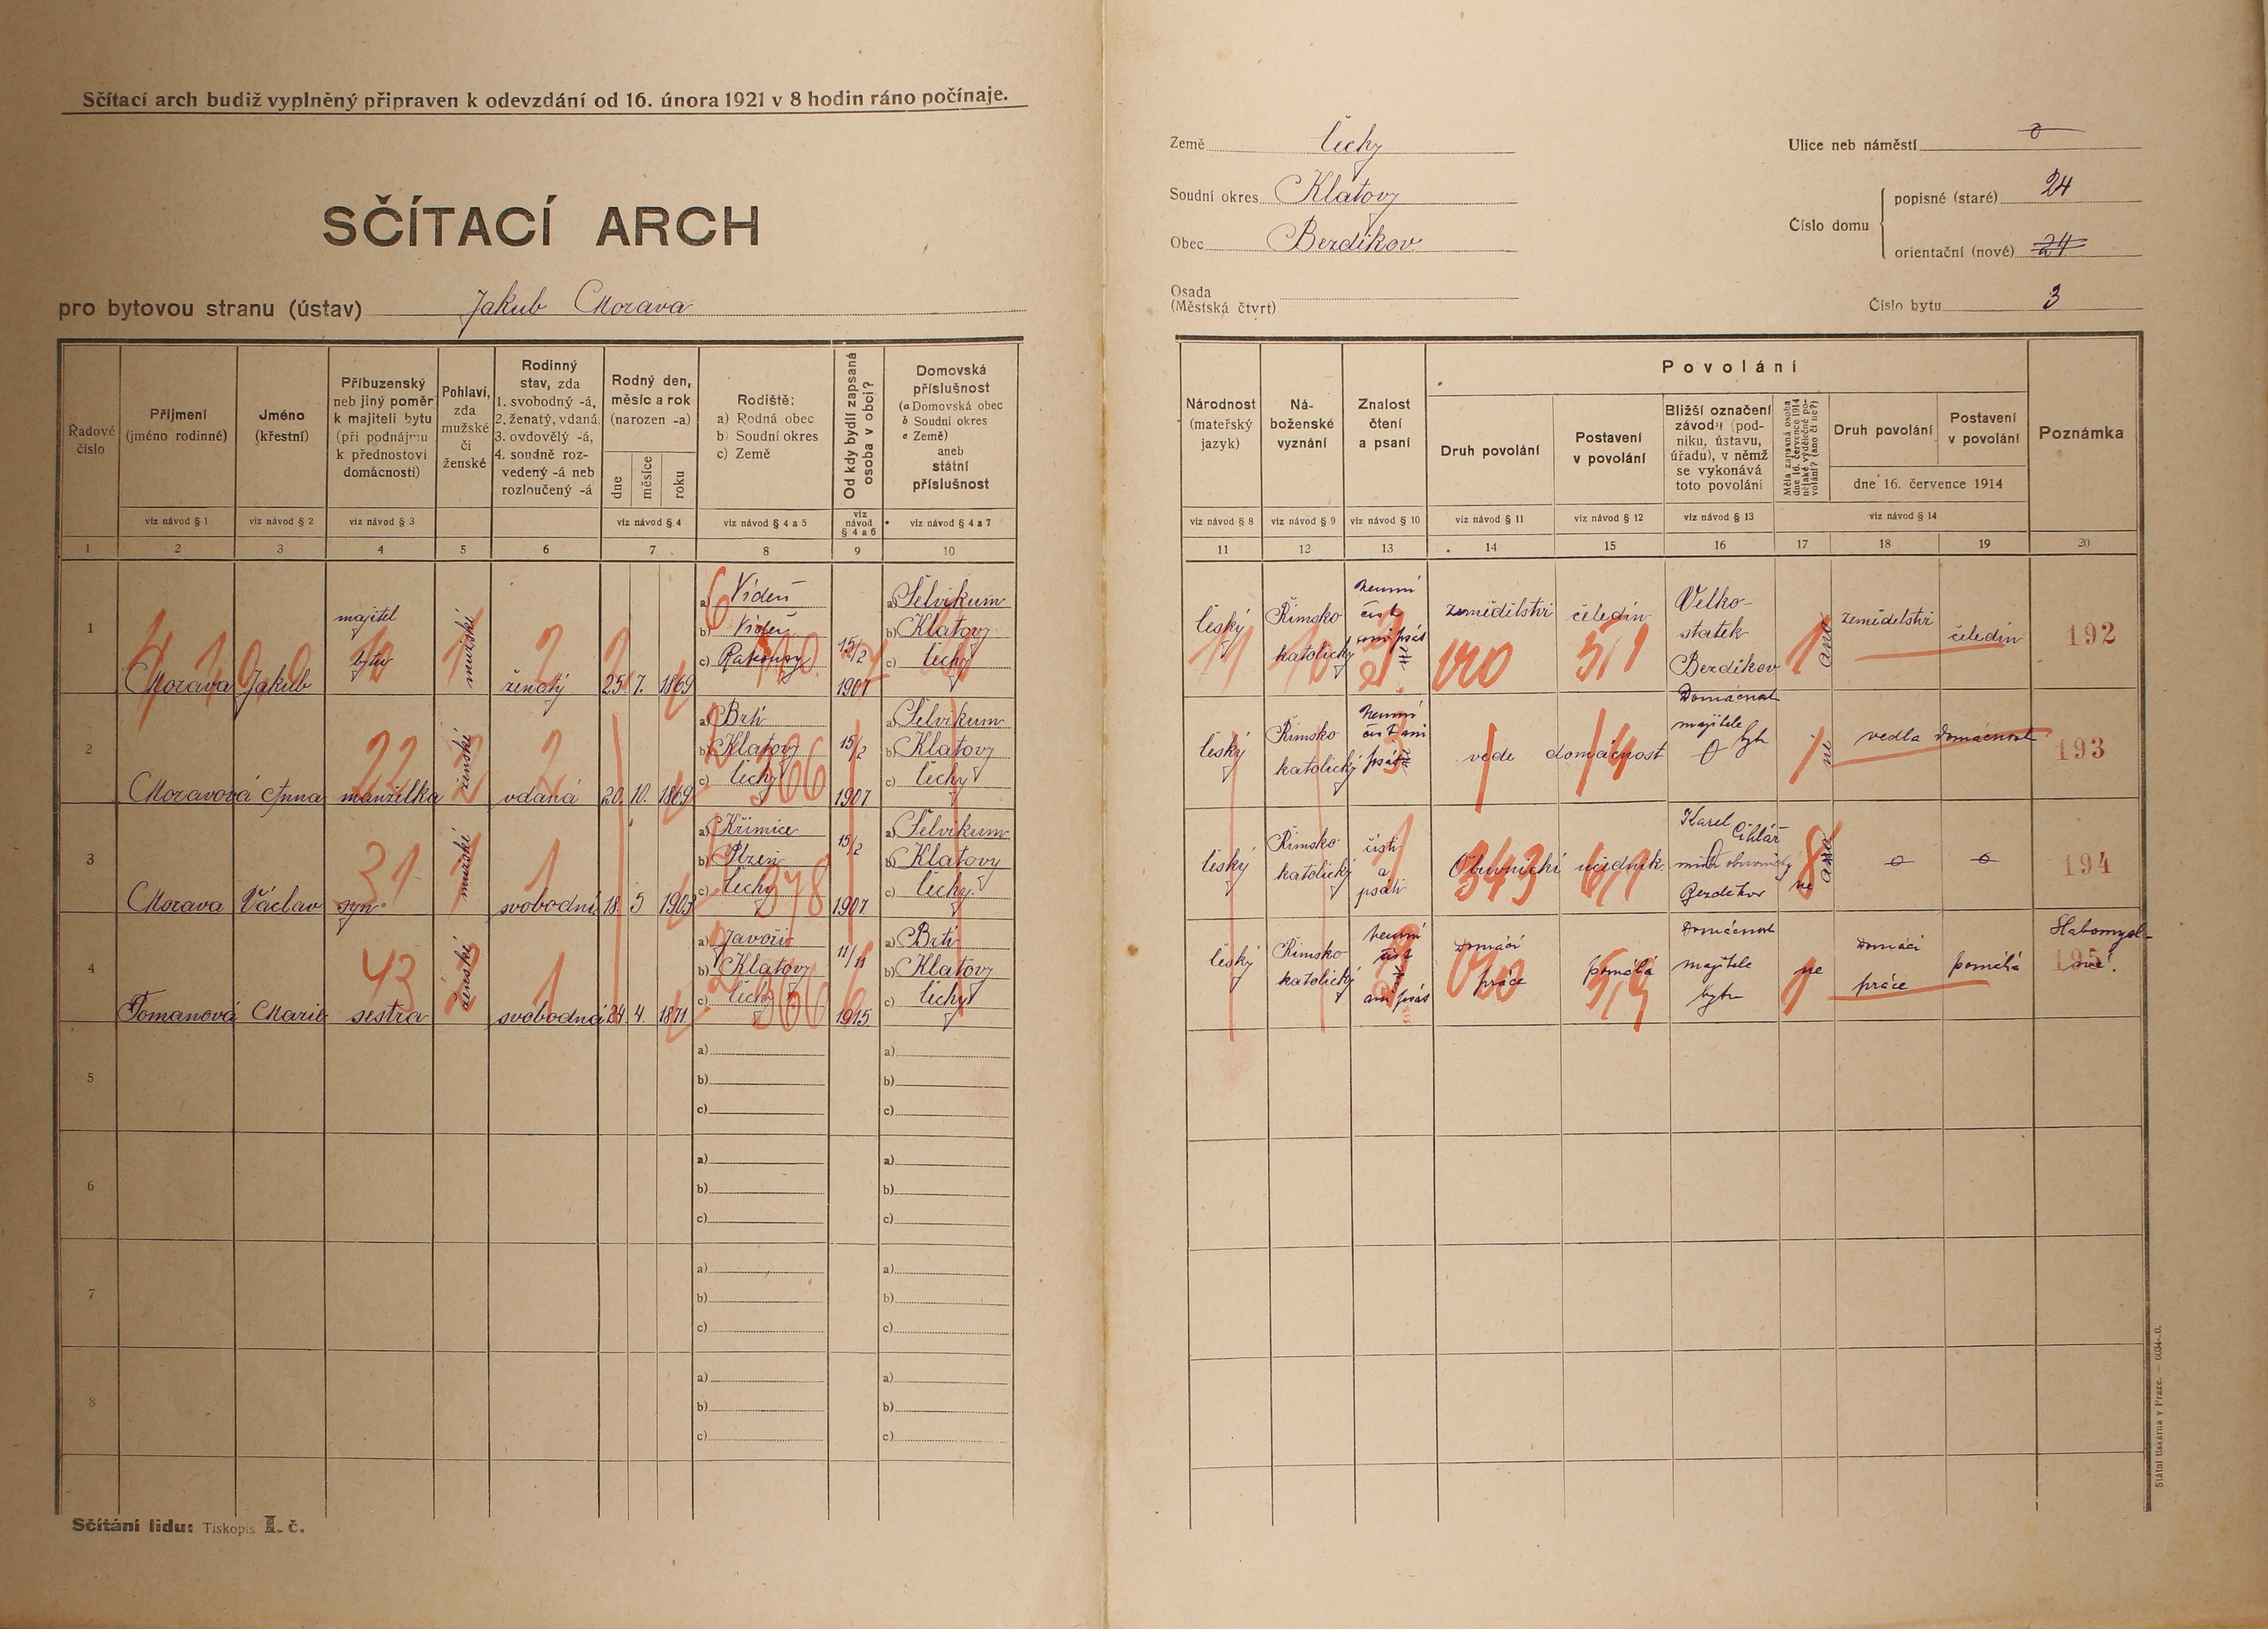 Sčítací arch budiž vyplněný připraven k odevzdání od 16. února 1921 v 8 hodin ráno počínaje.
SČÍTACÍ ARCH
pro bytovou stranu (ústav) Jakub Morava
Země Čechy
Soudní okres Klatovy
Obec Bezdikov
Osada
(Městská čtvrt)
Ulice neb náměstí
Číslo domu
popisné (staré) 24
orientační (nové) 24
Číslo bytu 3
Řadové číslo
Příjmení
(jméno rodinné)
viz návod § 1
Jméno
(křestní)
viz návod § 2
Příbuzenský
neb jiný poměr
k majiteli bytu
(při podnájmu
k přednostovi
domácnosti)
viz návod § 3
Pohlaví,
zda
mužské
či
ženské
Rodinný
stav, zda
1. svobodný -á,
2. ženatý, vdaná
3. ovdovělý -á,
4. soudně roz-
vedený -á neb
rozloučený -á
Rodný den,
měsíc a rok
(narozen -a)
dne
měsíce
roku
viz návod § 4
Rodiště:
a) Rodná obec
b) Soudní okres
c) Země
viz návod § 4 a 5
Od kdy bydlí zapsaná
osoba v obci?
viz
návod
§ 4 a 6
Domovská
příslušnost
(a Domovská obec
b Soudní okres
c Země)
aneb
státní
příslušnost
viz návod § 4 a 7
Národnost
(mateřský
jazyk)
viz návod § 8
Ná-
boženské
vyznání
viz návod § 9
Znalost
čtení
a psaní
viz návod § 10
Povolání
Druh povolání
viz návod § 11
Postavení
v povolání
viz návod § 12
Bližší označení
závodu (pod-
niku, ústavu,
úřadu), v němž
se vykonává
toto povolání
viz návod § 13
Měla zapsaná osoba
dne 16. července 1914
nějaké výdělečné po-
volání? (ano či ne?)
Druh povolání
Postavení
v povolání
dne 16. července 1914
viz návod § 14
Poznámka
1 2 3 4 5 6 7 8 9 10 11 12 13 14 15 16 17 18 19 20
1 Morava Jakub majitel bytu mužské ženatý 25. 7. 1869
a) Vídeň
b) Vídeň
c) Rakousy
15/2 1907
a) Jelvikum
b) Klatovy
c) Čechy
český Římsko katolický neumí číst ani psát zemědělství čeledín Velko-
statek
Bezdikov
ano zemědělství čeledín 192
2 Moravová Anna manželka ženské vdaná 20. 10. 1869
a) Brtí
b) Klatovy
c) Čechy
15/2 1907
b) Klatovy
c) Čechy
český Římsko katolický neumí číst ani psát vede domácnost Domácnost
majitele
byt
ne vedla domácnost 193
3 Morava Václav syn mužské svobodný 18. 5 1903
a) Křimice
b) Plzeň
c) Čechy
15/2 1907.
b) Klatovy
c) Čechy
český Římsko katolický čísti a psáti Obuvnictví učedník Karel
Cihlář
mistr obuvnický
Bezděkov
ne ano 194
4 Tomanová Marie sestra ženské svobodná 24. 4. 1871
a) Javoří
b) Klatovy
c) Čechy
11/11 1915
a) Brtí
b) Klatovy
c) Čechy
český Římsko katolický neumí číst ani psát Domácí práce pomáhá Domácnost
majitele
bytu
ne Domácí práce pomáhá 195
5
a)
b)
c)
a)
b)
c)
6
a)
b)
c)
a)
b)
c)
7
a)
b)
c)
a)
b)
c)
8
a)
b)
c)
a)
b)
c)
Sčítání lidu: Tiskopis I. č.
Státní tiskárna v Praze. — 6034-.0.